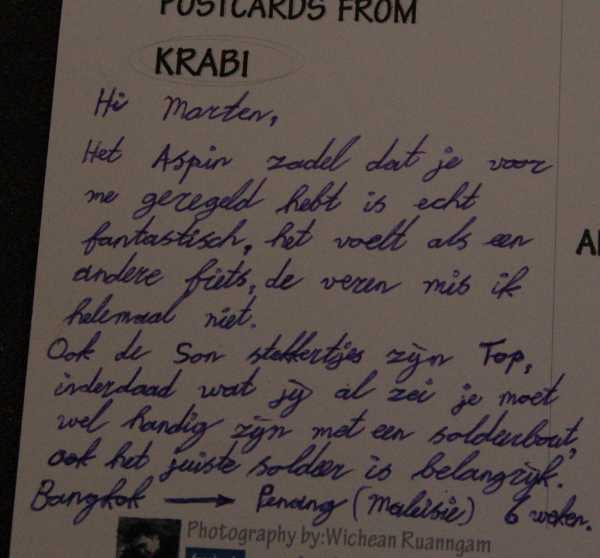 POSTCARDS FROM
KRABI
Hi Marten,
Het Aspin zadel dat je voor
me geregeld hebt is echt
fantastisch, het voelt als een
andere fiets, de veren mis ik
helemaal niet.
Ook de Son stekkertjes zijn Top,
inderdaad wat jij al zei je moet
wel handig zijn met een soldeerbout,
ook het juiste soldeer is belangrijk.
Bangkok → Penang (Maleisie) 6 weken.
Photography by:Wichean Ruanngam